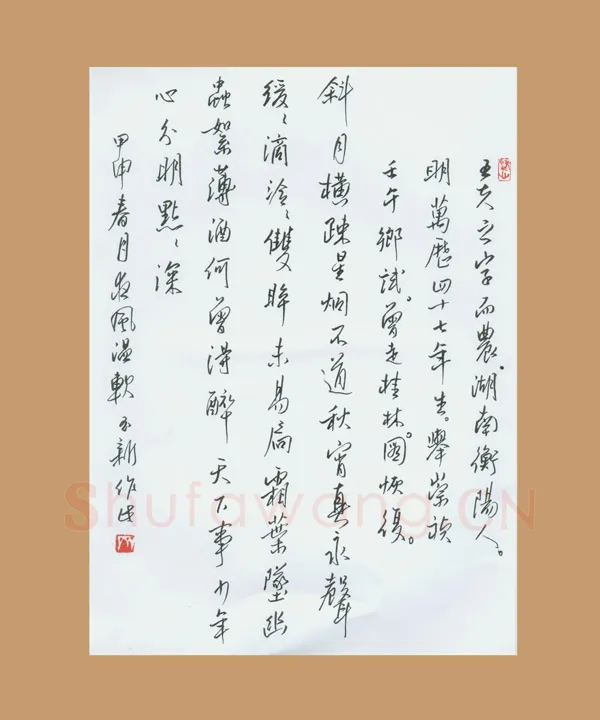 王夫之字而農。湖南衡陽人。
明萬歷四十七年生。舉崇禎
壬午鄉試。曾走桂林。圖恢復。
斜月橫疎星烱不道秋宵真永聲
緩〻滴泠〻雙眸未易扃霜葉墜幽
蟲絮薄酒何曾得醉 天下事少年
心分明點〻深
甲申春月夜風溫軟 新作此
Shufawang.CN